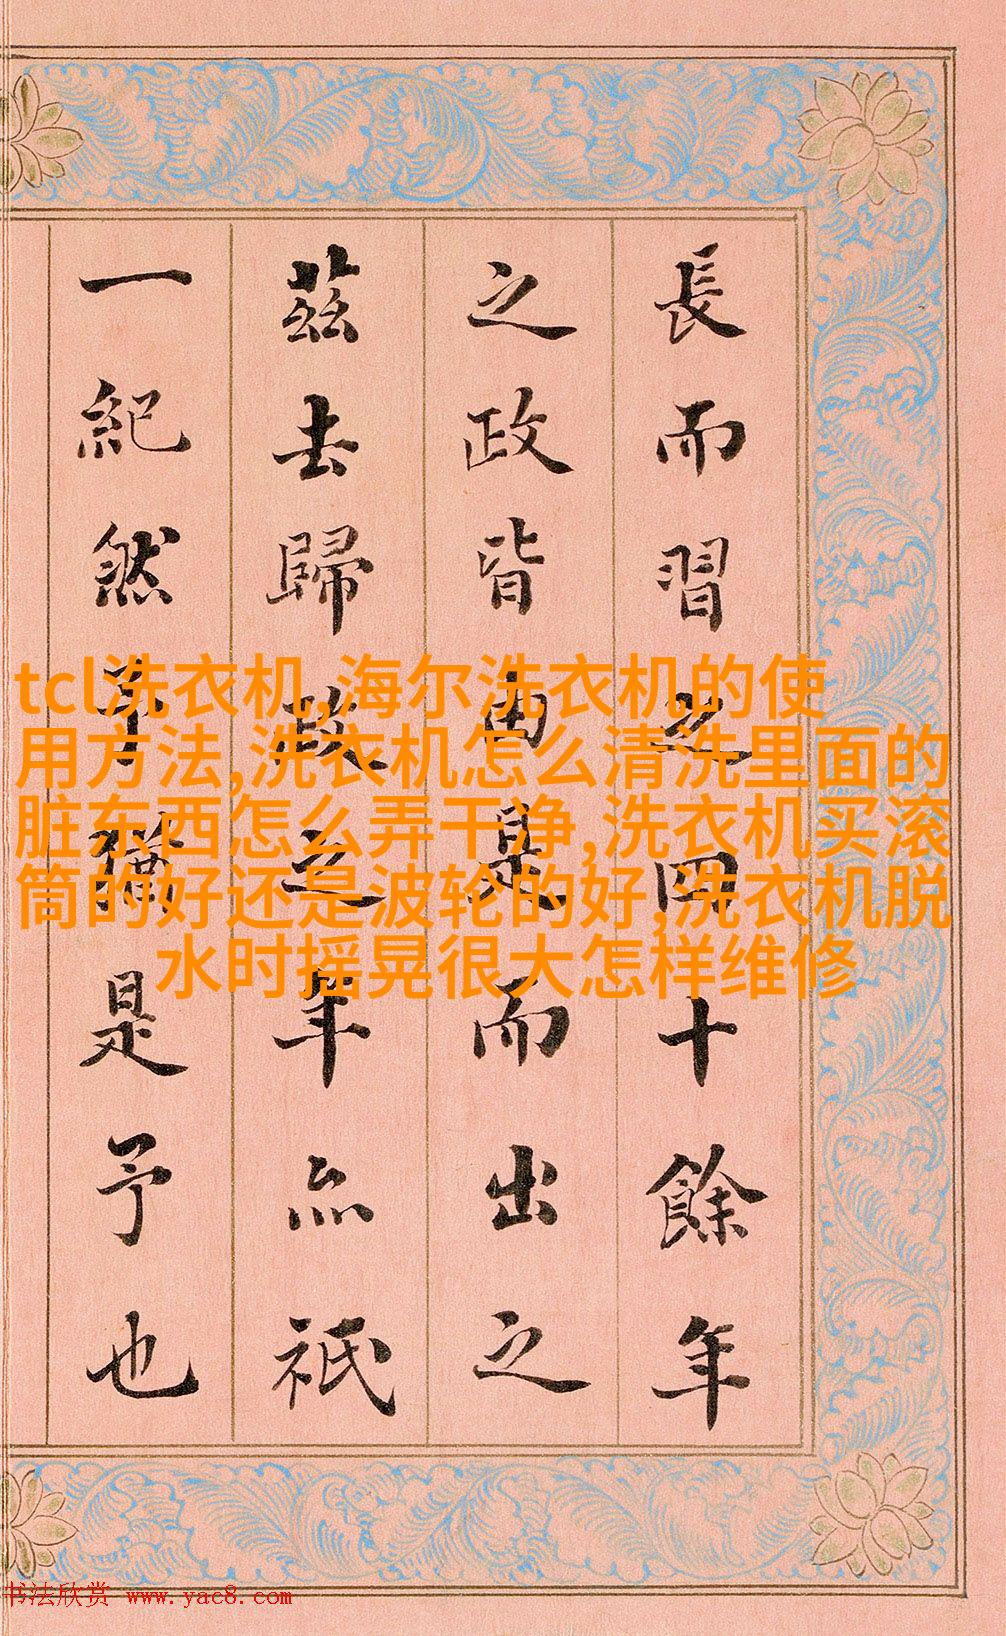 長而習之四十餘年
之政皆由是而出之
茲去歸政之年亦祇
一紀然予猶是予也
tcl洗衣机,海尔洗衣机的使
用方法,洗衣机怎么清洗里面的
脏东西怎么弄干净,洗衣机买滚
筒的好还是波轮的好,洗衣机脱
水时摇晃很大怎样维修
书法欣赏 www.yac8.com